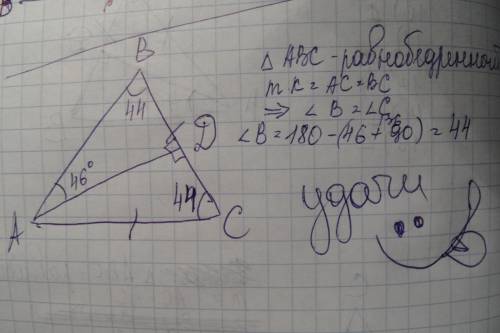 B
44
D
46°
44
A
C
△ ABC - равнобедренный
т.к = AC = BC
⇒ ∠ B = ∠C
∠B = 180 - (46 + 90) = 44
удачи